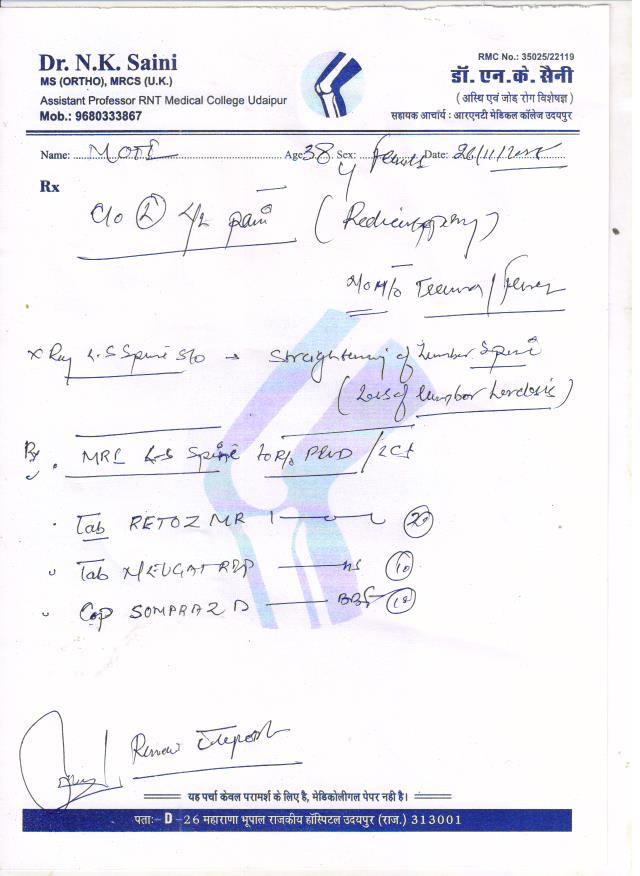 Dr. N.K. Saini
MS (ORTHO), MRCS (U.K.)
Assistant Professor RNT Medical College Udaipur
Mob.: 9680333867
RMC No.: 35025/22119
डॉ. एन.के. सैनी
( अस्थि एवं जोड़ रोग विशेषज्ञ )
सहायक आचार्य : आरएनटी मेडिकल कॉलेज उदयपुर
Name: Age 38 Sex: Date: 26/11/
Rx
C/o pain
X Ray L.S Spine S/o → Straightening of Lumbar Spine
(Loss of lumbar Lordosis)
Rx
MRI L-S Spine to R/o PIVD /
Tab RETOZ MR 1 — 0 —
Tab HS (10)
Cap SOMPRAZ D BBF (10)
Review
यह पर्चा केवल परामर्श के लिए है, मेडिकोलीगल पेपर नही है।
पता:- D - 26 महाराणा भूपाल राजकीय हॉस्पिटल उदयपुर (राज.) 313001